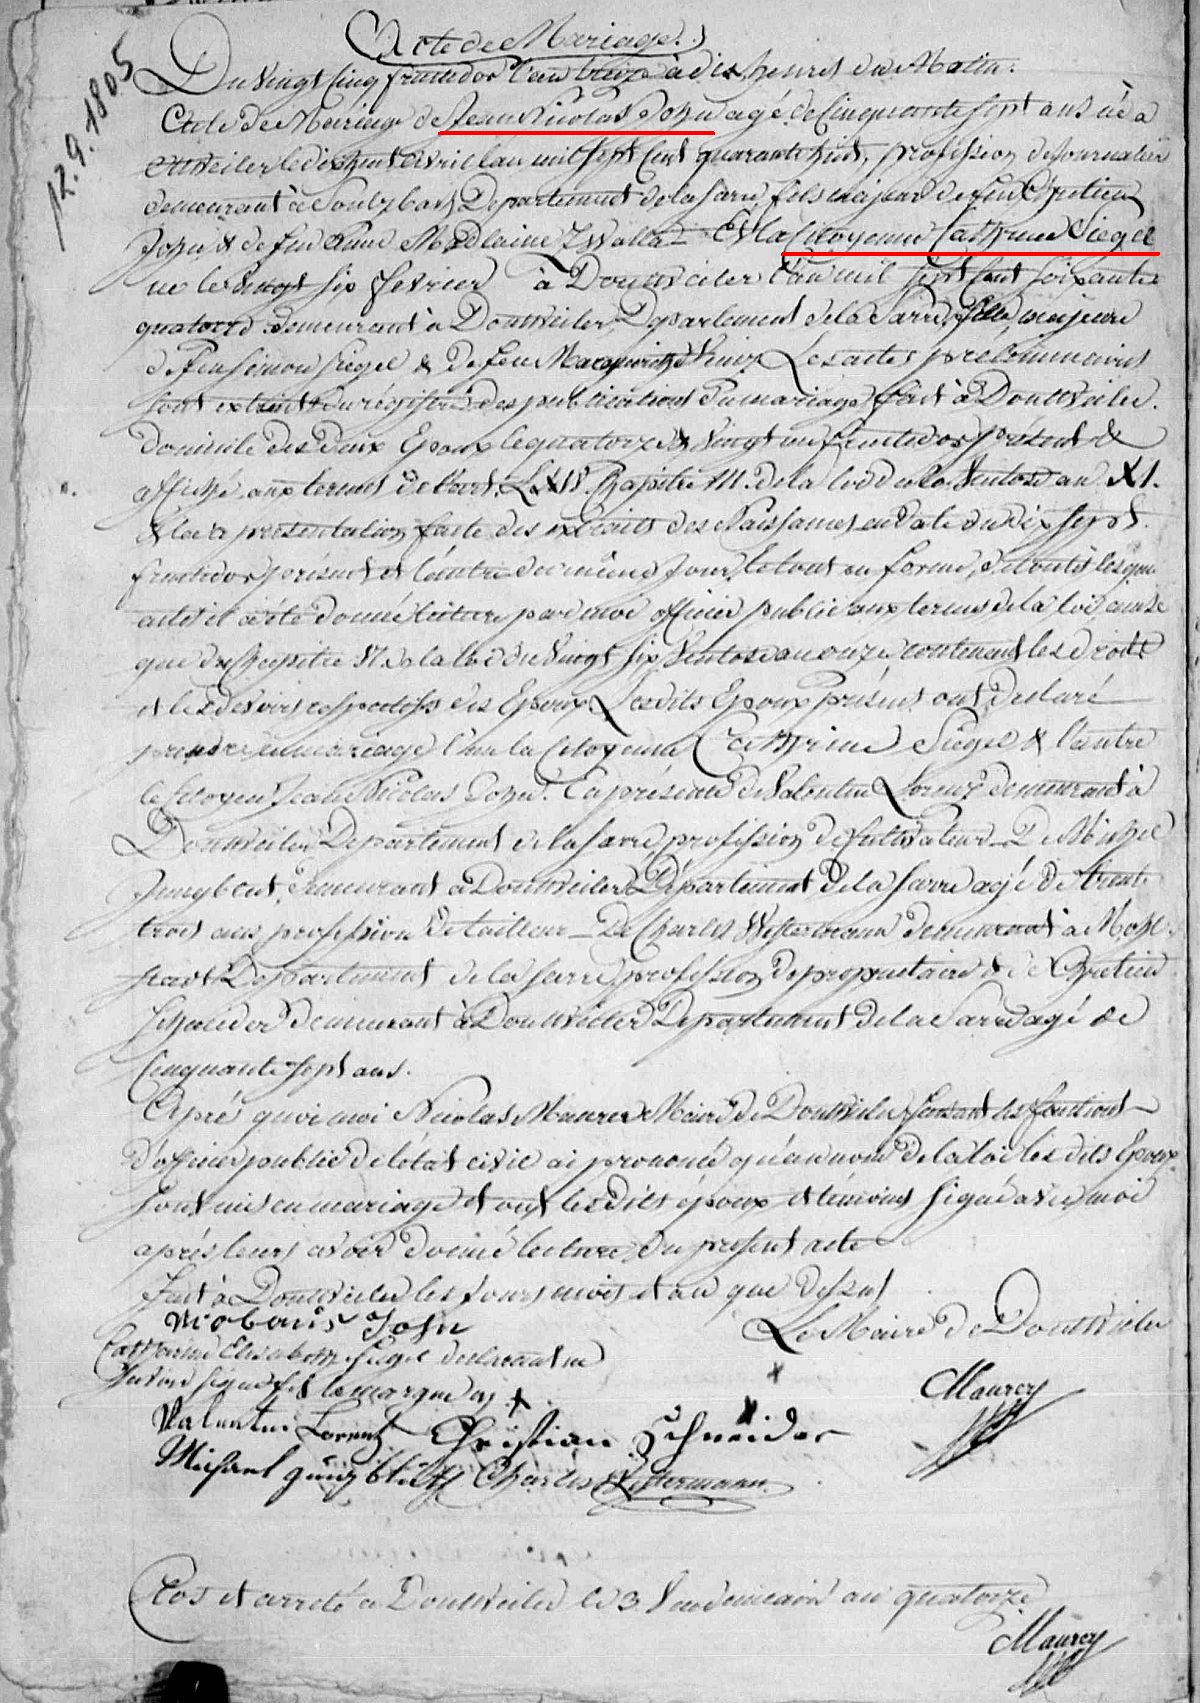 Acte de Mariage.
12.9.1805
Du Vingt Cinq fructidor l'an treize à dix heures du Matin.
Acte de Mariage de Jean Nicolas John agé de Cinquante sept ans né à
le dixhuit Avril l'an mil sept Cent quarante huit, profession de Journalier
demeurant à Soulzbach Departement de la Sarre, fils majeur de feu Chretien
John & de feu Anne Madlaine Et la Citoyenne Cathrine Siegel
né le Vingt six fevrier à Doutweiler l'an mil sept Cent soixante
quatorze demeurant à Doutweiler Departement de la Sarre, fille majeure
de feu Simon Siegel & de feu Margueritte Les actes préliminaires
sont extraits du régistre des publications du mariage fait à Doutweiler.
domicile des deux Epoux le quatorze & Vingt un fructidor présent &
affiché aux termes de l'art. LXIV. Chapitre III. de la loi du 20 Ventose an XI.
& la représentation faite des extraits des Naissances en date du dix sept
fructidor présent et l'autre du même Jour, le tout en forme, de touts lesque
actes il a été donné lecture par moi officier public aux termes de la loi, ainsi
que du Chapitre VI. de la loi du Vingt six Ventose an onze contenant les droits
et les devoirs respectifs des Epoux Lesdits Epoux Présent ont declaré
prendre en mariage l'un la Citoyenne Cathrine Siegel & l'autre
le Citoyen Jean Nicolas John. En présence de Valentin Lorenz demeurant à
Doutweiler Departement de la Sarre, profession de Cultivateur – De Michel
Jungblut, demeurant à Doutweiler Département de la Sarre agé de trente
trois ans profession de tailleur – De Charles Westermann demeurant à Mohl-
stadt Departement de la Sarre, profession de propriétaire & de Chretien
Schneider demeurant à Doutweiler Departement de la Sarre agé de
Cinquante sept ans.
Apré quoi moi Nicolas Maurer Maire de Doutweiler faisant les fonctions
d'officier public de l'état civil ai prononcé qu'au nom de la loi les dits Epoux
sont unis en mariage et ont les dits époux et témoins signé avec moi
après leurs avoir donné lecture du present acte
fait à Doutweiler les Jours mois et an que dessus
John
Le Maire de Doutweiler
Catharine Elisabeth Siegel declarant ne
savoir signer fit la marque x
Maurer
Valentin Lorenz Christian Schneider
Michael Jüngblüth Charles Westermann
Clos et arreté à Doutweiler le 3 Vendemiaire an quatorze
Maurer